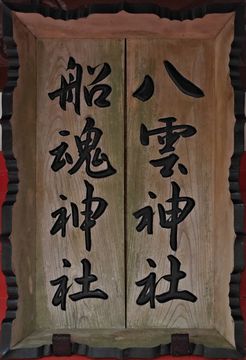 八雲神社
船魂神社